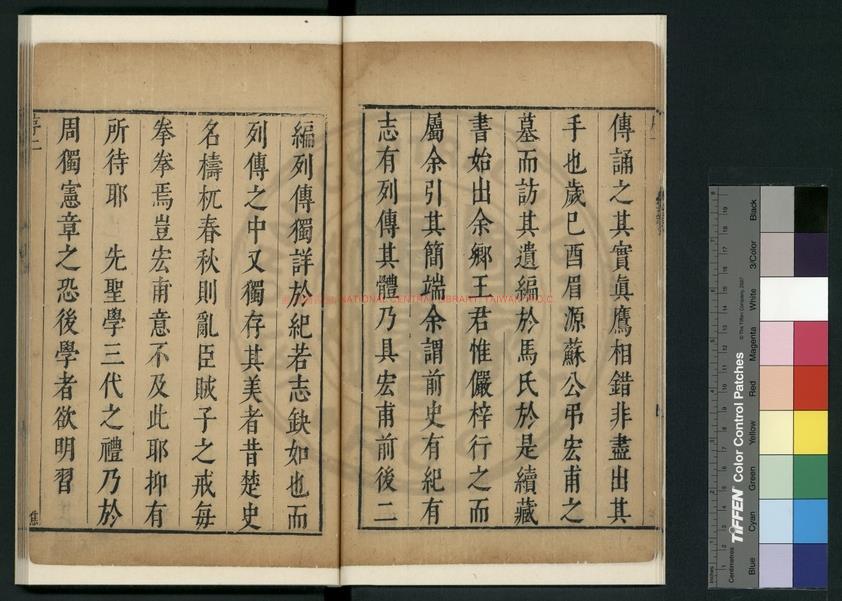 傳誦之其實眞贗相錯非盡出其
手也歲己酉眉源蘇公弔宏甫之
墓而訪其遺編於馬氏於是續藏
書始出余鄉王君惟儼梓行之而
屬余引其簡端余謂前史有紀有
志有列傳其體乃具宏甫前後二
編列傳獨詳於紀若志缺如也而
列傳之中又獨存其美者昔楚史
名檮杌春秋則亂臣賊子之戒每
拳拳焉豈宏甫意不及此耶抑有
所待耶　先聖學三代之禮乃於
周獨憲章之恐後學者欲明習
序二
焦
NATIONAL CENTRAL LIBRARY, TAIWAN R.O.C.
TIFFEN Color Control Patches
© The Tiffen Company, 2007
Centimetres
Inches
Blue
Cyan
Green
Yellow
Red
Magenta
White
3/Color
Black